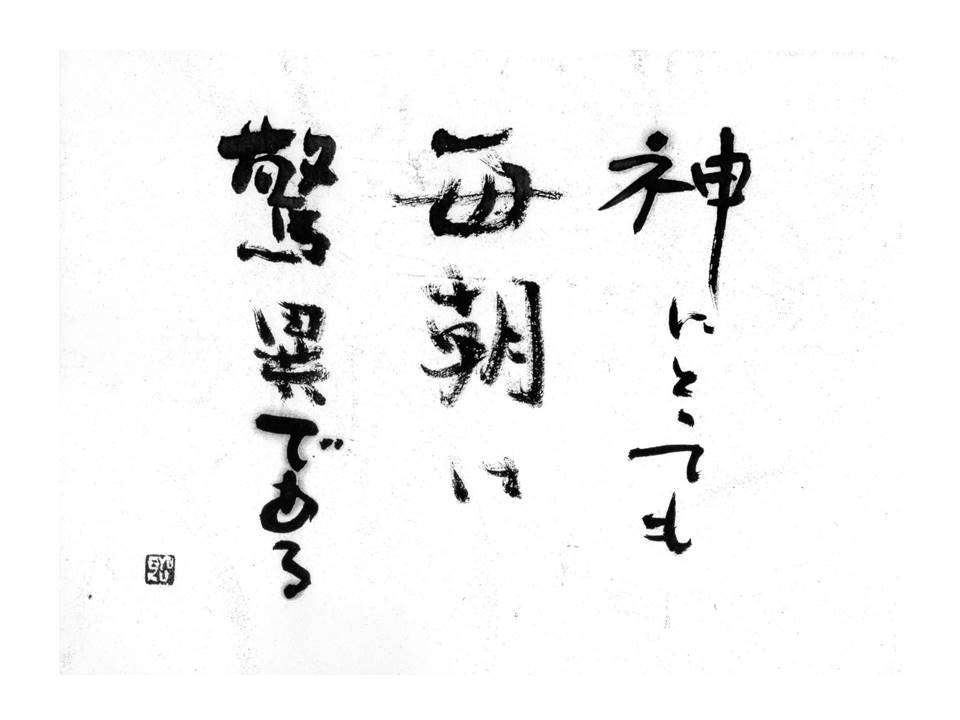 神にとっても
毎朝は
驚異である